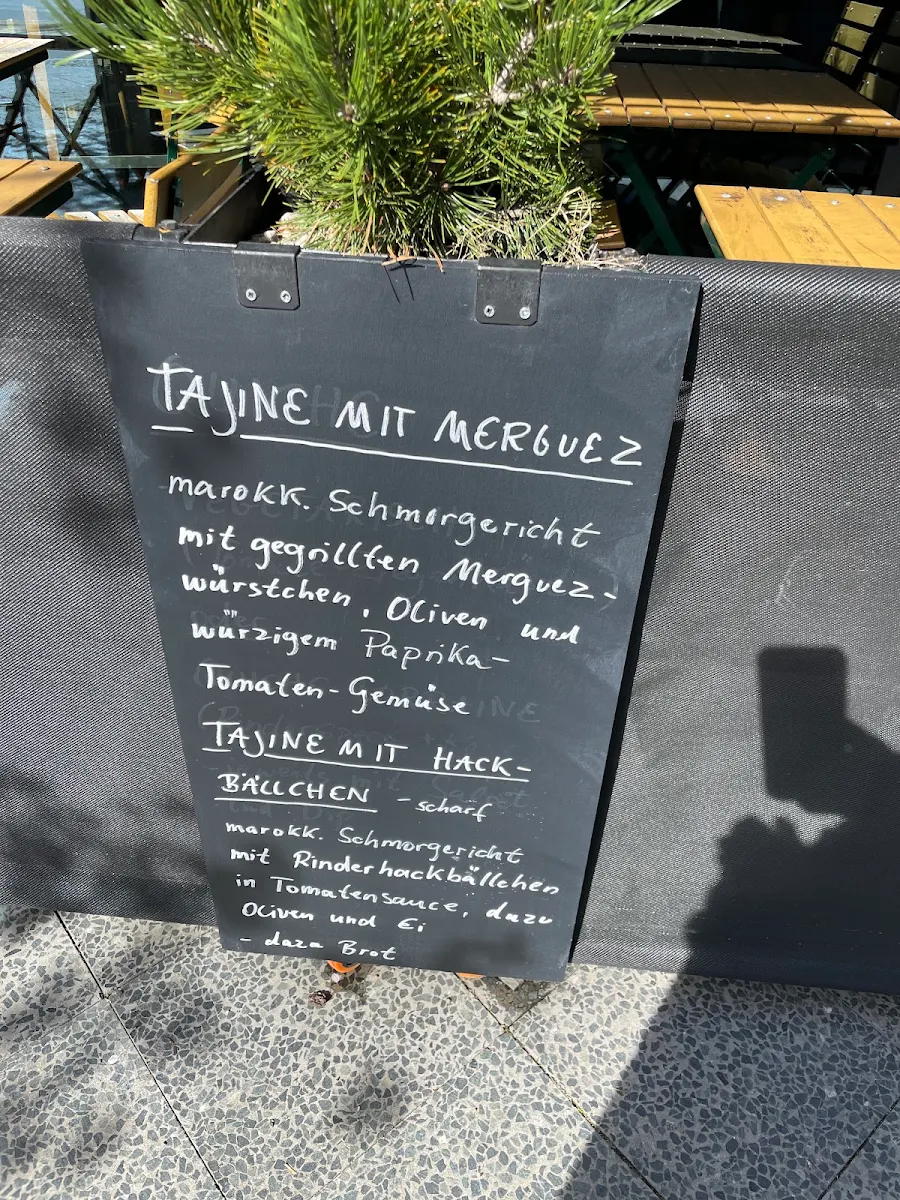 TAJINE MIT MERGUEZ
marokk. Schmorgericht
mit gegrillten Merguez-
würstchen, Oliven und
würzigem Paprika-
Tomaten-Gemüse
TAJINE MIT HACK-
BÄLLCHEN - scharf
marokk. Schmorgericht
mit Rinderhackbällchen
in Tomatensauce, dazu
Oliven und Ei
- dazu Brot